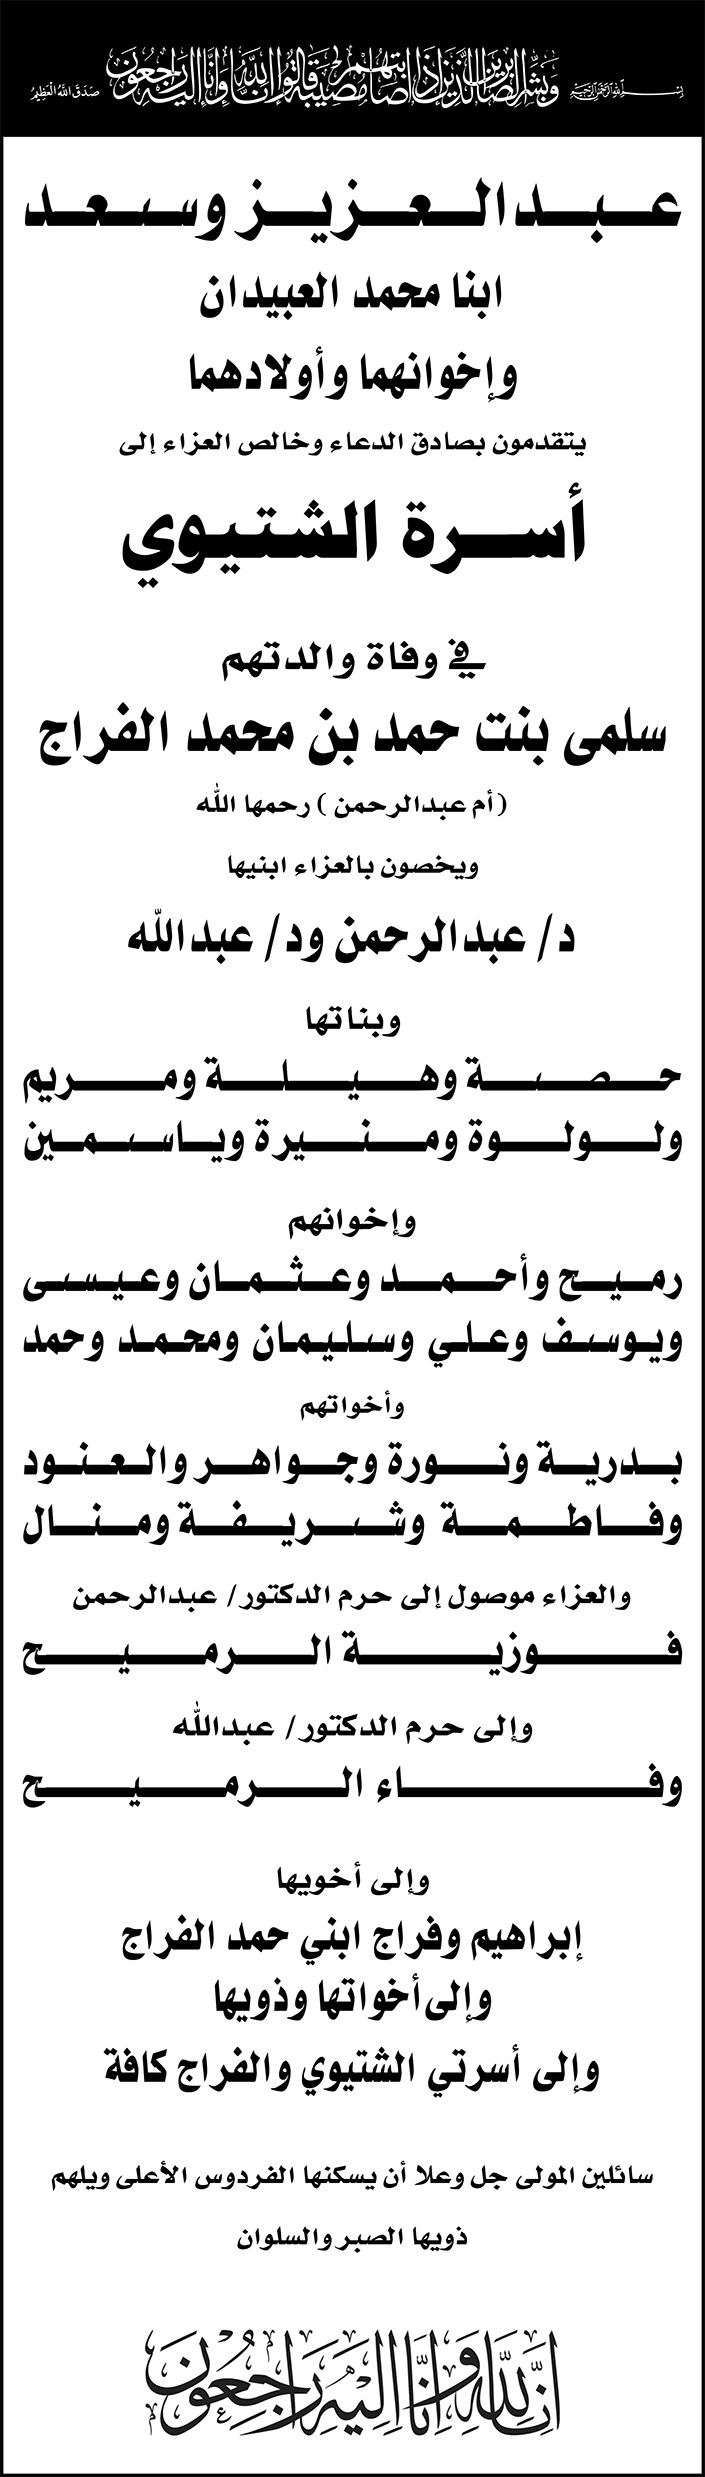 بسم الله الرحمن الرحيم
وبشر الصابرين الذين إذا أصابتهم مصيبة قالوا إنا لله وإنا إليه راجعون
صدق الله العظيم
عبدالعزيز وسعد
ابنا محمد العبيدان
وإخوانهما وأولادهما
يتقدمون بصادق الدعاء وخالص العزاء إلى
أسرة الشتيوي
في وفاة والدتهم
سلمى بنت حمد بن محمد الفراج
(أم عبدالرحمن ) رحمها الله
ويخصون بالعزاء ابنيها
د/ عبدالرحمن ود/ عبدالله
وبناتها
حصة وهيلة ومريم
ولولوة ومنيرة وياسمين
وإخوانهم
رميح وأحمد وعثمان وعيسى
ويوسف وعلي وسليمان ومحمد وحمد
وأخواتهم
بدرية ونورة وجواهر والعنود
وفاطمة وشريفة ومنال
والعزاء موصول إلى حرم الدكتور/ عبدالرحمن
فوزية الرميح
وإلى حرم الدكتور/ عبدالله
وفاء الرميح
وإلى أخويها
إبراهيم وفراج ابني حمد الفراج
وإلى أخواتها وذويها
وإلى أسرتي الشتيوي والفراج كافة
سائلين المولى جل وعلا أن يسكنها الفردوس الأعلى ويلهم
ذويها الصبر والسلوان
إنا لله وإنا إليه راجعون